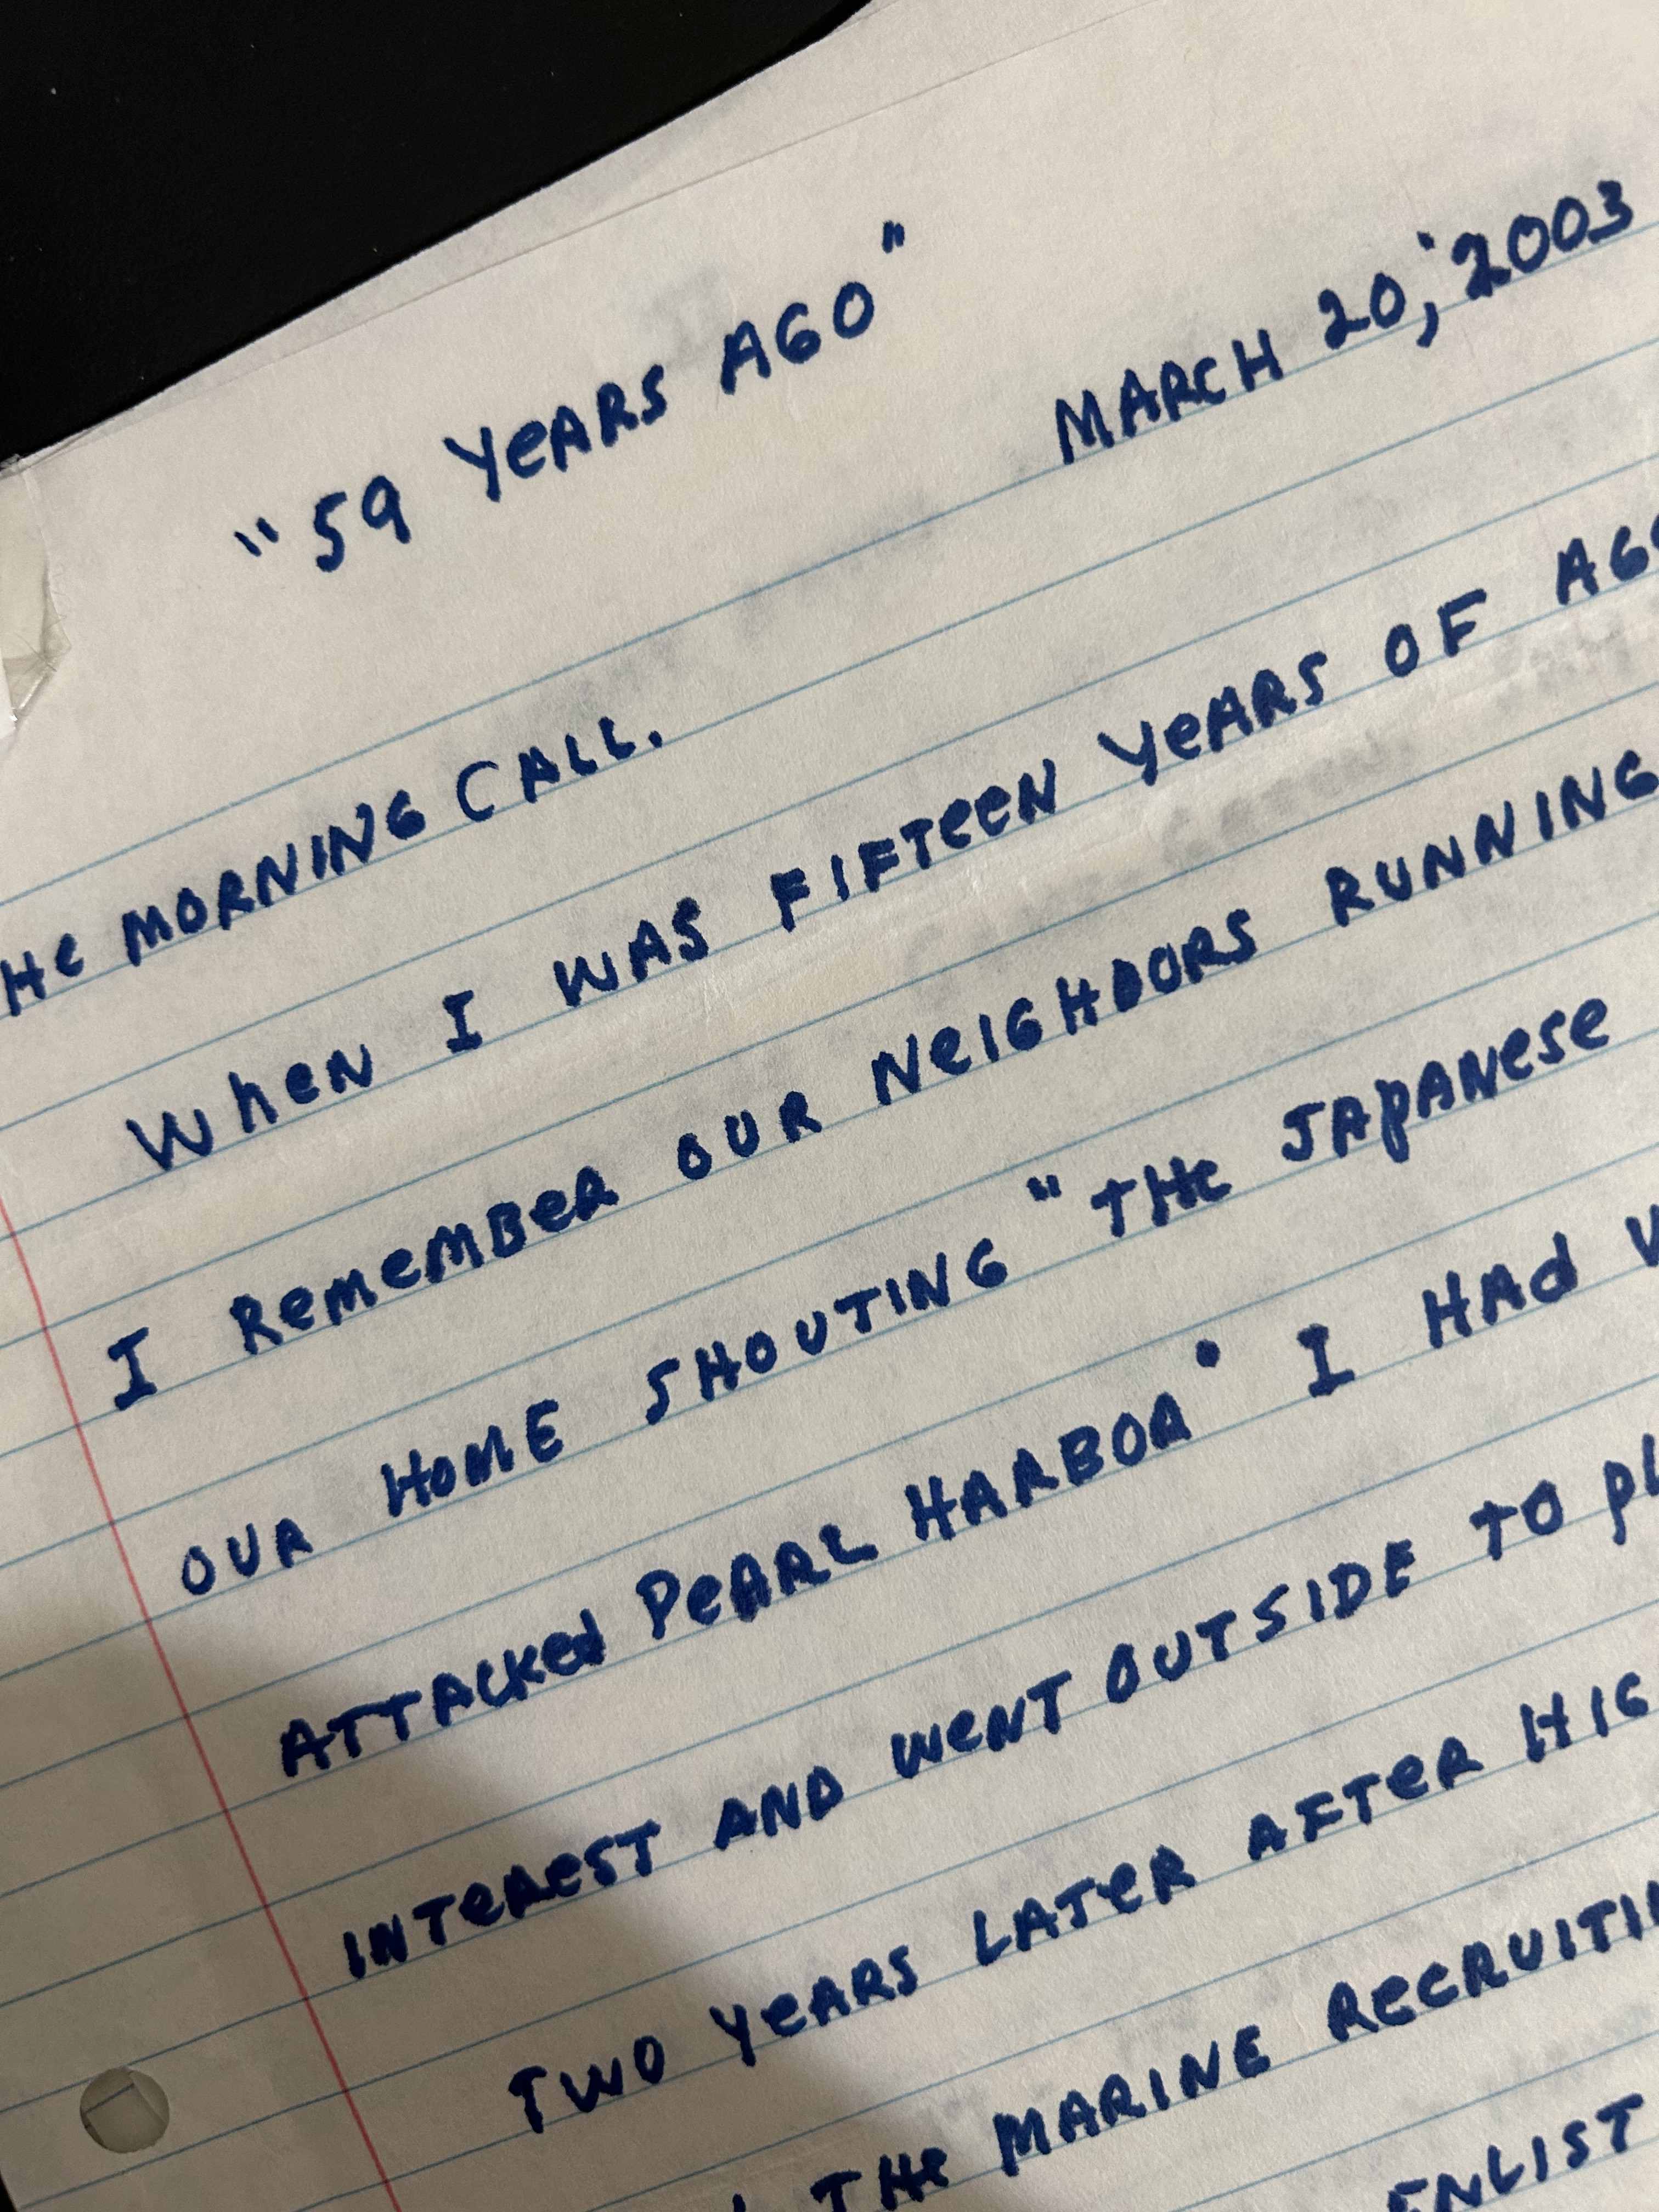 "59 YeARS AGO"
MARCH 20, 2003
MORNING CALL.
When I WAS FIFTeeN YeARS OF
I ReMeMBeR OUR NeIGHBORS RUNNING
OUR HOME SHOUTING "THe JAPANese
ATTACKed PeARL HARBOR" I HAd
INTeReST AND WeNT OUTSIDE TO
TWO YeARS LATeR AFTeR
THe MARINE
ENLIST